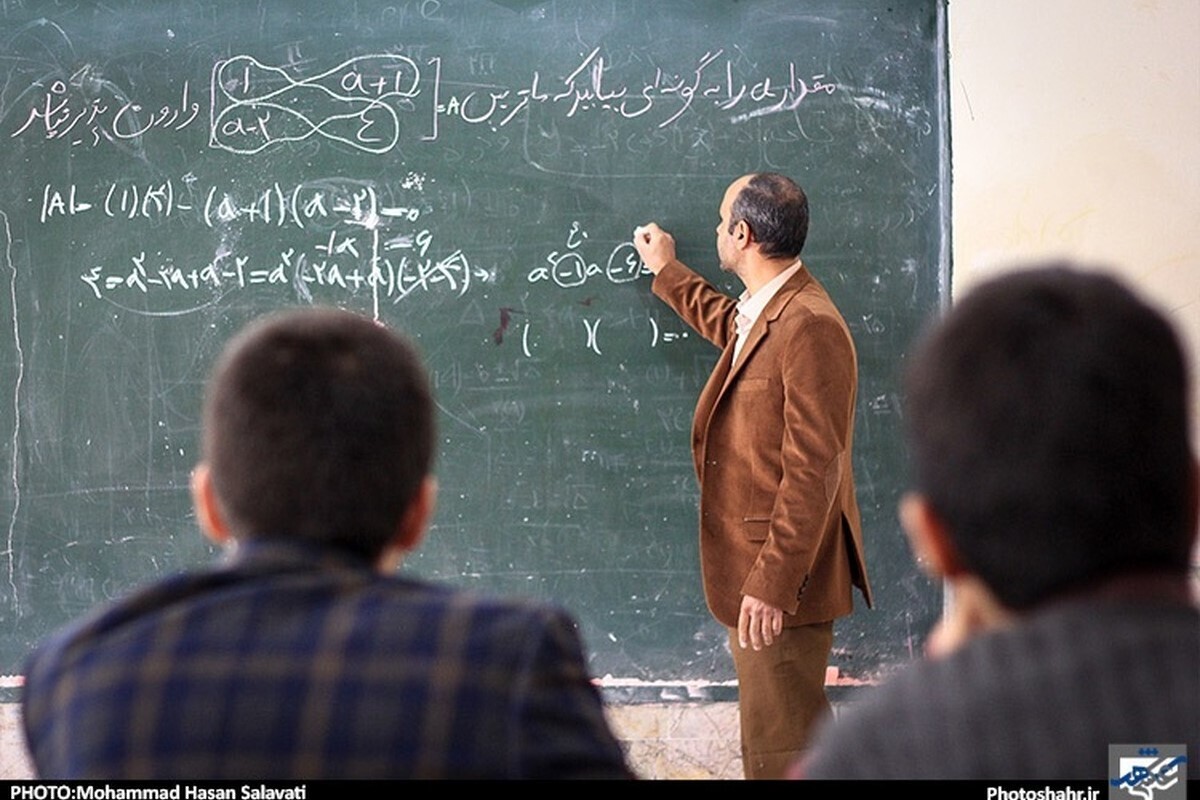 مقدار a را به گونه‌ای بیابید که ماتریس A = [1 a+1 a-2 4] وارون پذیر نباشد
|A| = (1)(۴) - (a+1)(a-۲) = ۰
۴ = a² - ۲a + a - ۲ = a² (-۲a + a) (-۲-۴) →
-1a = ۶
a² (-1) a (-۶) =
( )( ) = ۰
PHOTO:Mohammad Hasan Salavati
Photoshahr.ir